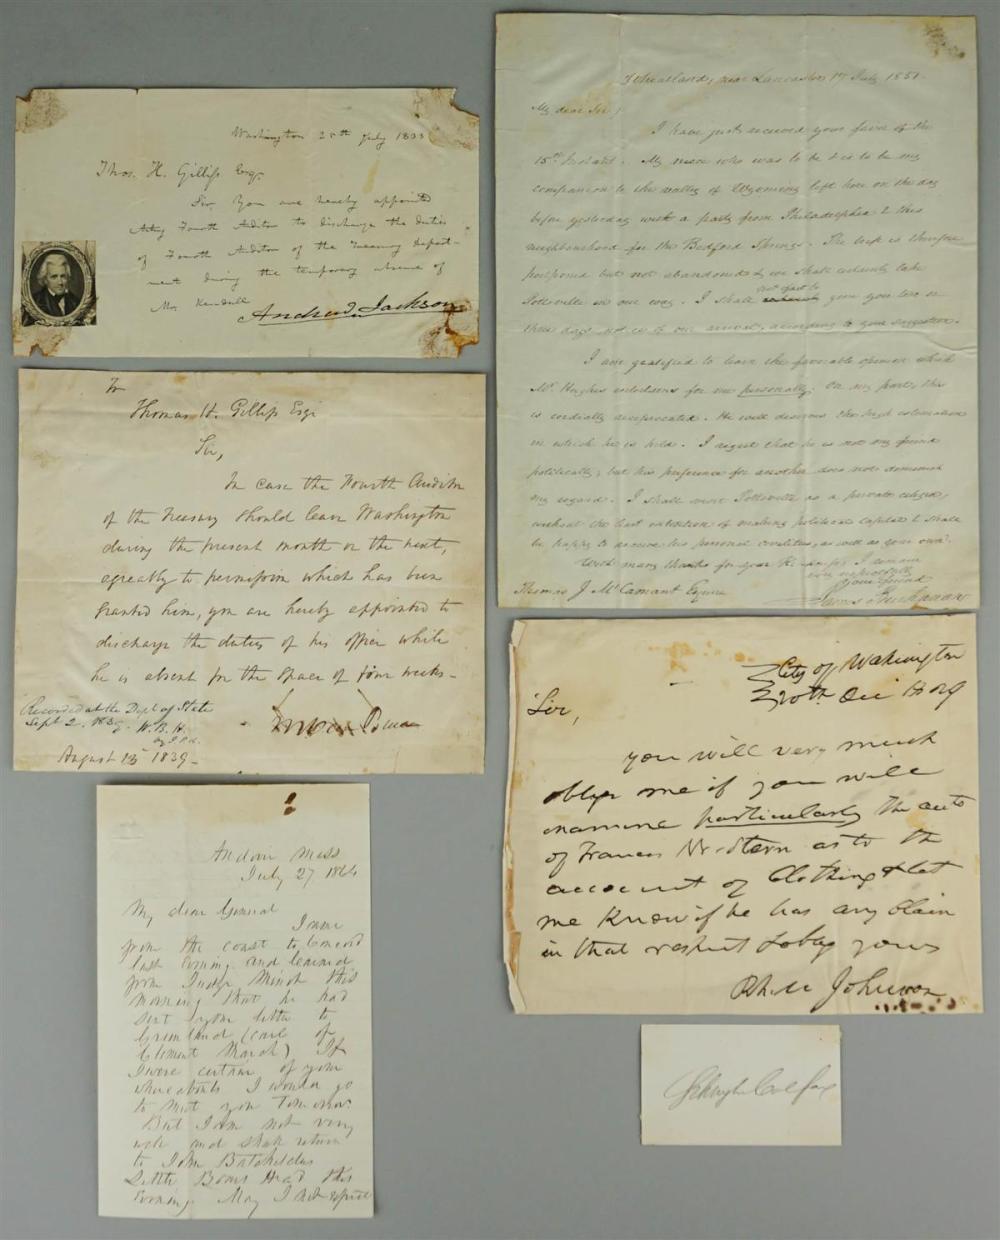 Washington 25th July 1833
Thos. H. Gillis Esq.
Sir, You are hereby appointed
Acting Fourth Auditor to discharge the duties
of Fourth Auditor of the Treasury Depart-
ment during the temporary absence of
Mr. Kendall
Andrew Jackson
To
Thomas H. Gillis Esqr
Sir,
In case the Fourth Auditor
of the Treasury should leave Washington
during the present month or the next,
agreeably to permission which has been
granted him, you are hereby appointed to
discharge the duties of his office while
he is absent for the space of four weeks-
Recorded at the Dept of State
Sept 2. 1839. W. B. H.
August 15 1839-
Andover Mass
July 27 1864
My dear General
I came
from the coast to Concord
last evening and learned
from Judge Minot this
morning that he had
sent your letter to
Greenland (care of
Clement March) If
I were certain of your
whereabouts I would go
to meet you tomorrow
But I am not very
well and shall return
to John Batchelders
Little Boars Head this
evening. May I not expect
Wheatland, near Lancaster 17 July 1851.
My dear Sir,
I have just received your favor of the
15th Instant. My niece who was to be & is to be my
companion to the valley of Wyoming left here on the day
before yesterday with a party from Philadelphia & this
neighbourhood for the Bedford Springs. The trip is therefore
postponed but not abandoned & we shall certainly take
Pottsville in our way. I shall give you two or
three days notice of our arrival, according to your suggestion.
I am gratified to learn the favorable opinion which
Mr. Hughes entertains for me personally. On my part, this
is cordially reciprocated. He well deserves the high estimation
in which he is held. I regret that he is not my friend
politically; but his preference for another does not diminish
my regard. I shall visit Pottsville as a private citizen,
without the least intention of making political capital & shall
be happy to receive his personal civilities, as well as your own.
With many thanks for your I remain
very respectfully
your friend
James Buchanan
Thomas J McCamant Esquire
City of Washington
20th Dec 1809
Sir,
you will very much
oblige me if you will
examine particularly the
of Francis as to the
account of Clothing & let
me know if he has any claim
in that respect & oblige yours
Rh. M Johnson
Schuyler Colfax